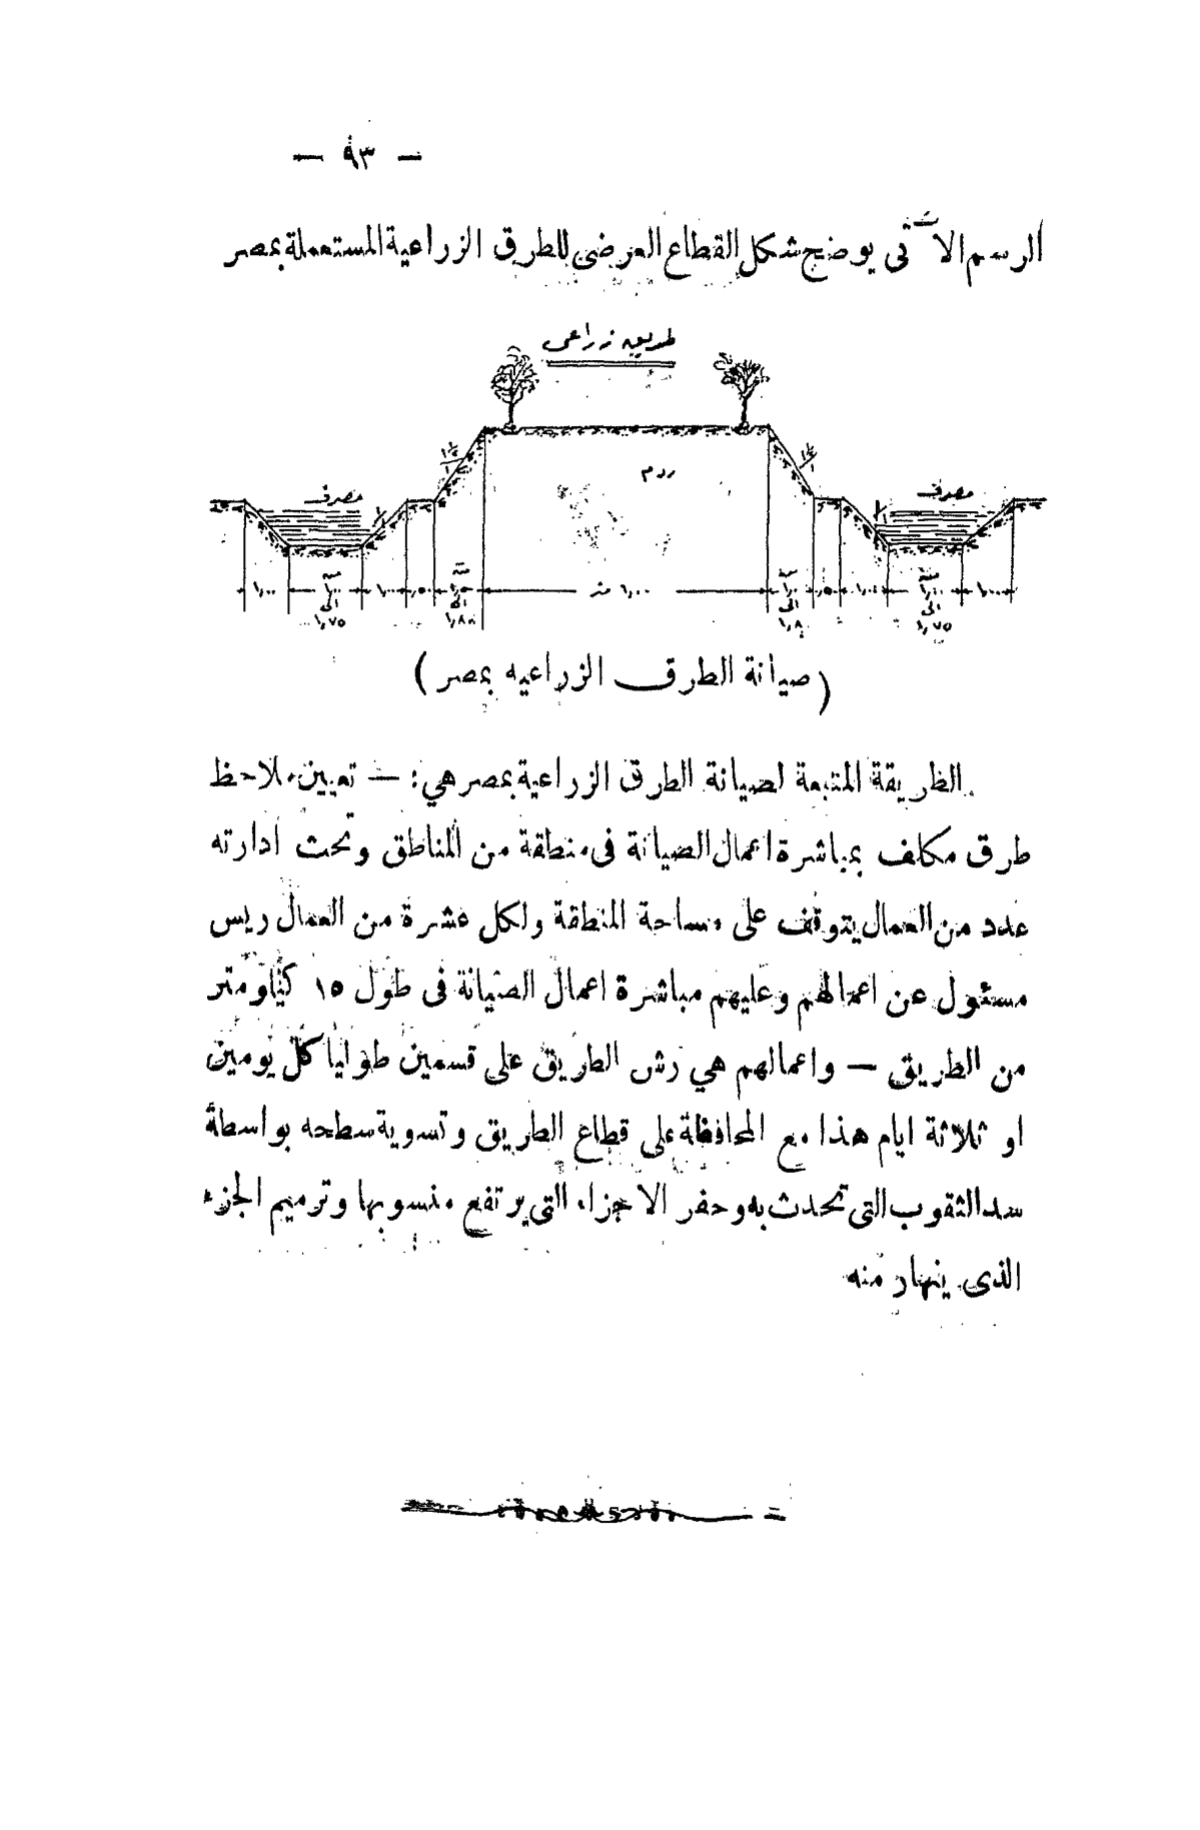 — ٩٣ —
الرسم الآتى يوضح شكل القطاع العرضى للطرق الزراعية المستعملة بمصر
طريق زراعى
ردم
مصرف
مصرف
١٫٠٠
من ١٫٠٠ الى ١٫٧٥
١٫٠٠
من ١٫٥٠ الى ١٫٨٠
متر
الى ١٫٨
من ١٫٠٠ الى ١٫٧٥
١٫٠٠
(صيانة الطرق الزراعيه بمصر)
الطريقة المتبعة لصيانة الطرق الزراعية بمصر هي: — تعيين ملاحظ
طرق مكلف بمباشرة اعمال الصيانة فى منطقة من المناطق وتحت ادارته
عدد من العمال يتوقف على مساحة المنطقة ولكل عشرة من العمال ريس
مسئول عن اعمالهم وعليهم مباشرة اعمال الصيانة فى طول ١٥ كيلومتر
من الطريق — واعمالهم هي رش الطريق على قسمين طوليا كل يومين
او ثلاثة ايام هذا مع المحافظة على قطاع الطريق وتسوية سطحه بواسطة
سد الثقوب التى تحدث به وحفر الاجزاء التى يرتفع منسوبها وترميم الجزء
الذى ينهار منه